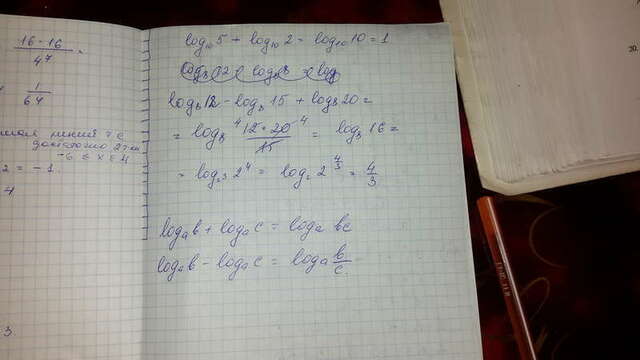 16 · 16
4⁷
1
64
2 = - 1.
4
3.
log₁₀5 + log₁₀2 = log₁₀10 = 1
log₈12 - log₈15 + log₈20 =
= log₈ (12 · 20)/15 = log₈ 16 =
= log₂³ 2⁴ = log₂ 2^(4/3) = 4/3
logₐb + logₐc = logₐ bc
logₐb - logₐc = logₐ b/c